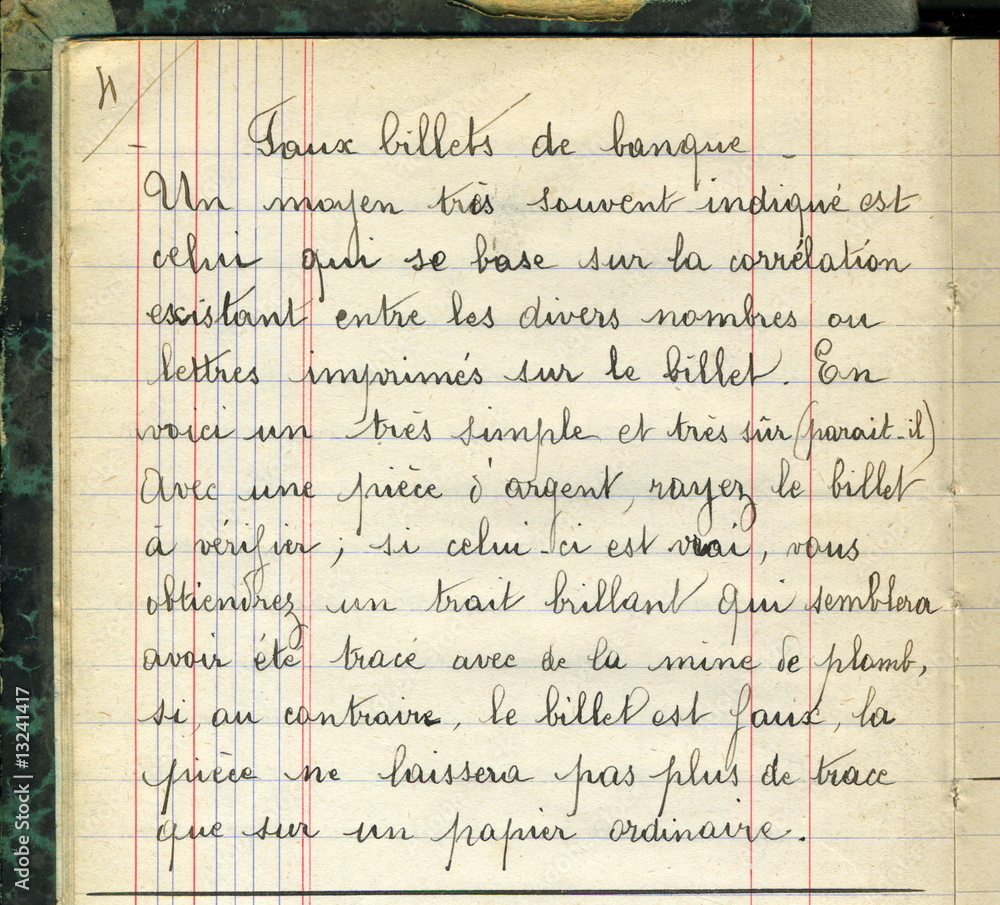 4
Faux billets de banque
Un moyen très souvent indiqué est
celui qui se base sur la corrélation
existant entre les divers nombres ou
lettres imprimés sur le billet. En
voici un très simple et très sûr (parait-il)
Avec une pièce d'argent, rayez le billet
à vérifier ; si celui-ci est vrai, vous
obtiendrez un trait brillant qui semblera
avoir été tracé avec de la mine de plomb,
si, au contraire, le billet est faux, la
pièce ne laissera pas plus de trace
que sur un papier ordinaire.
Adobe Stock | #13241417